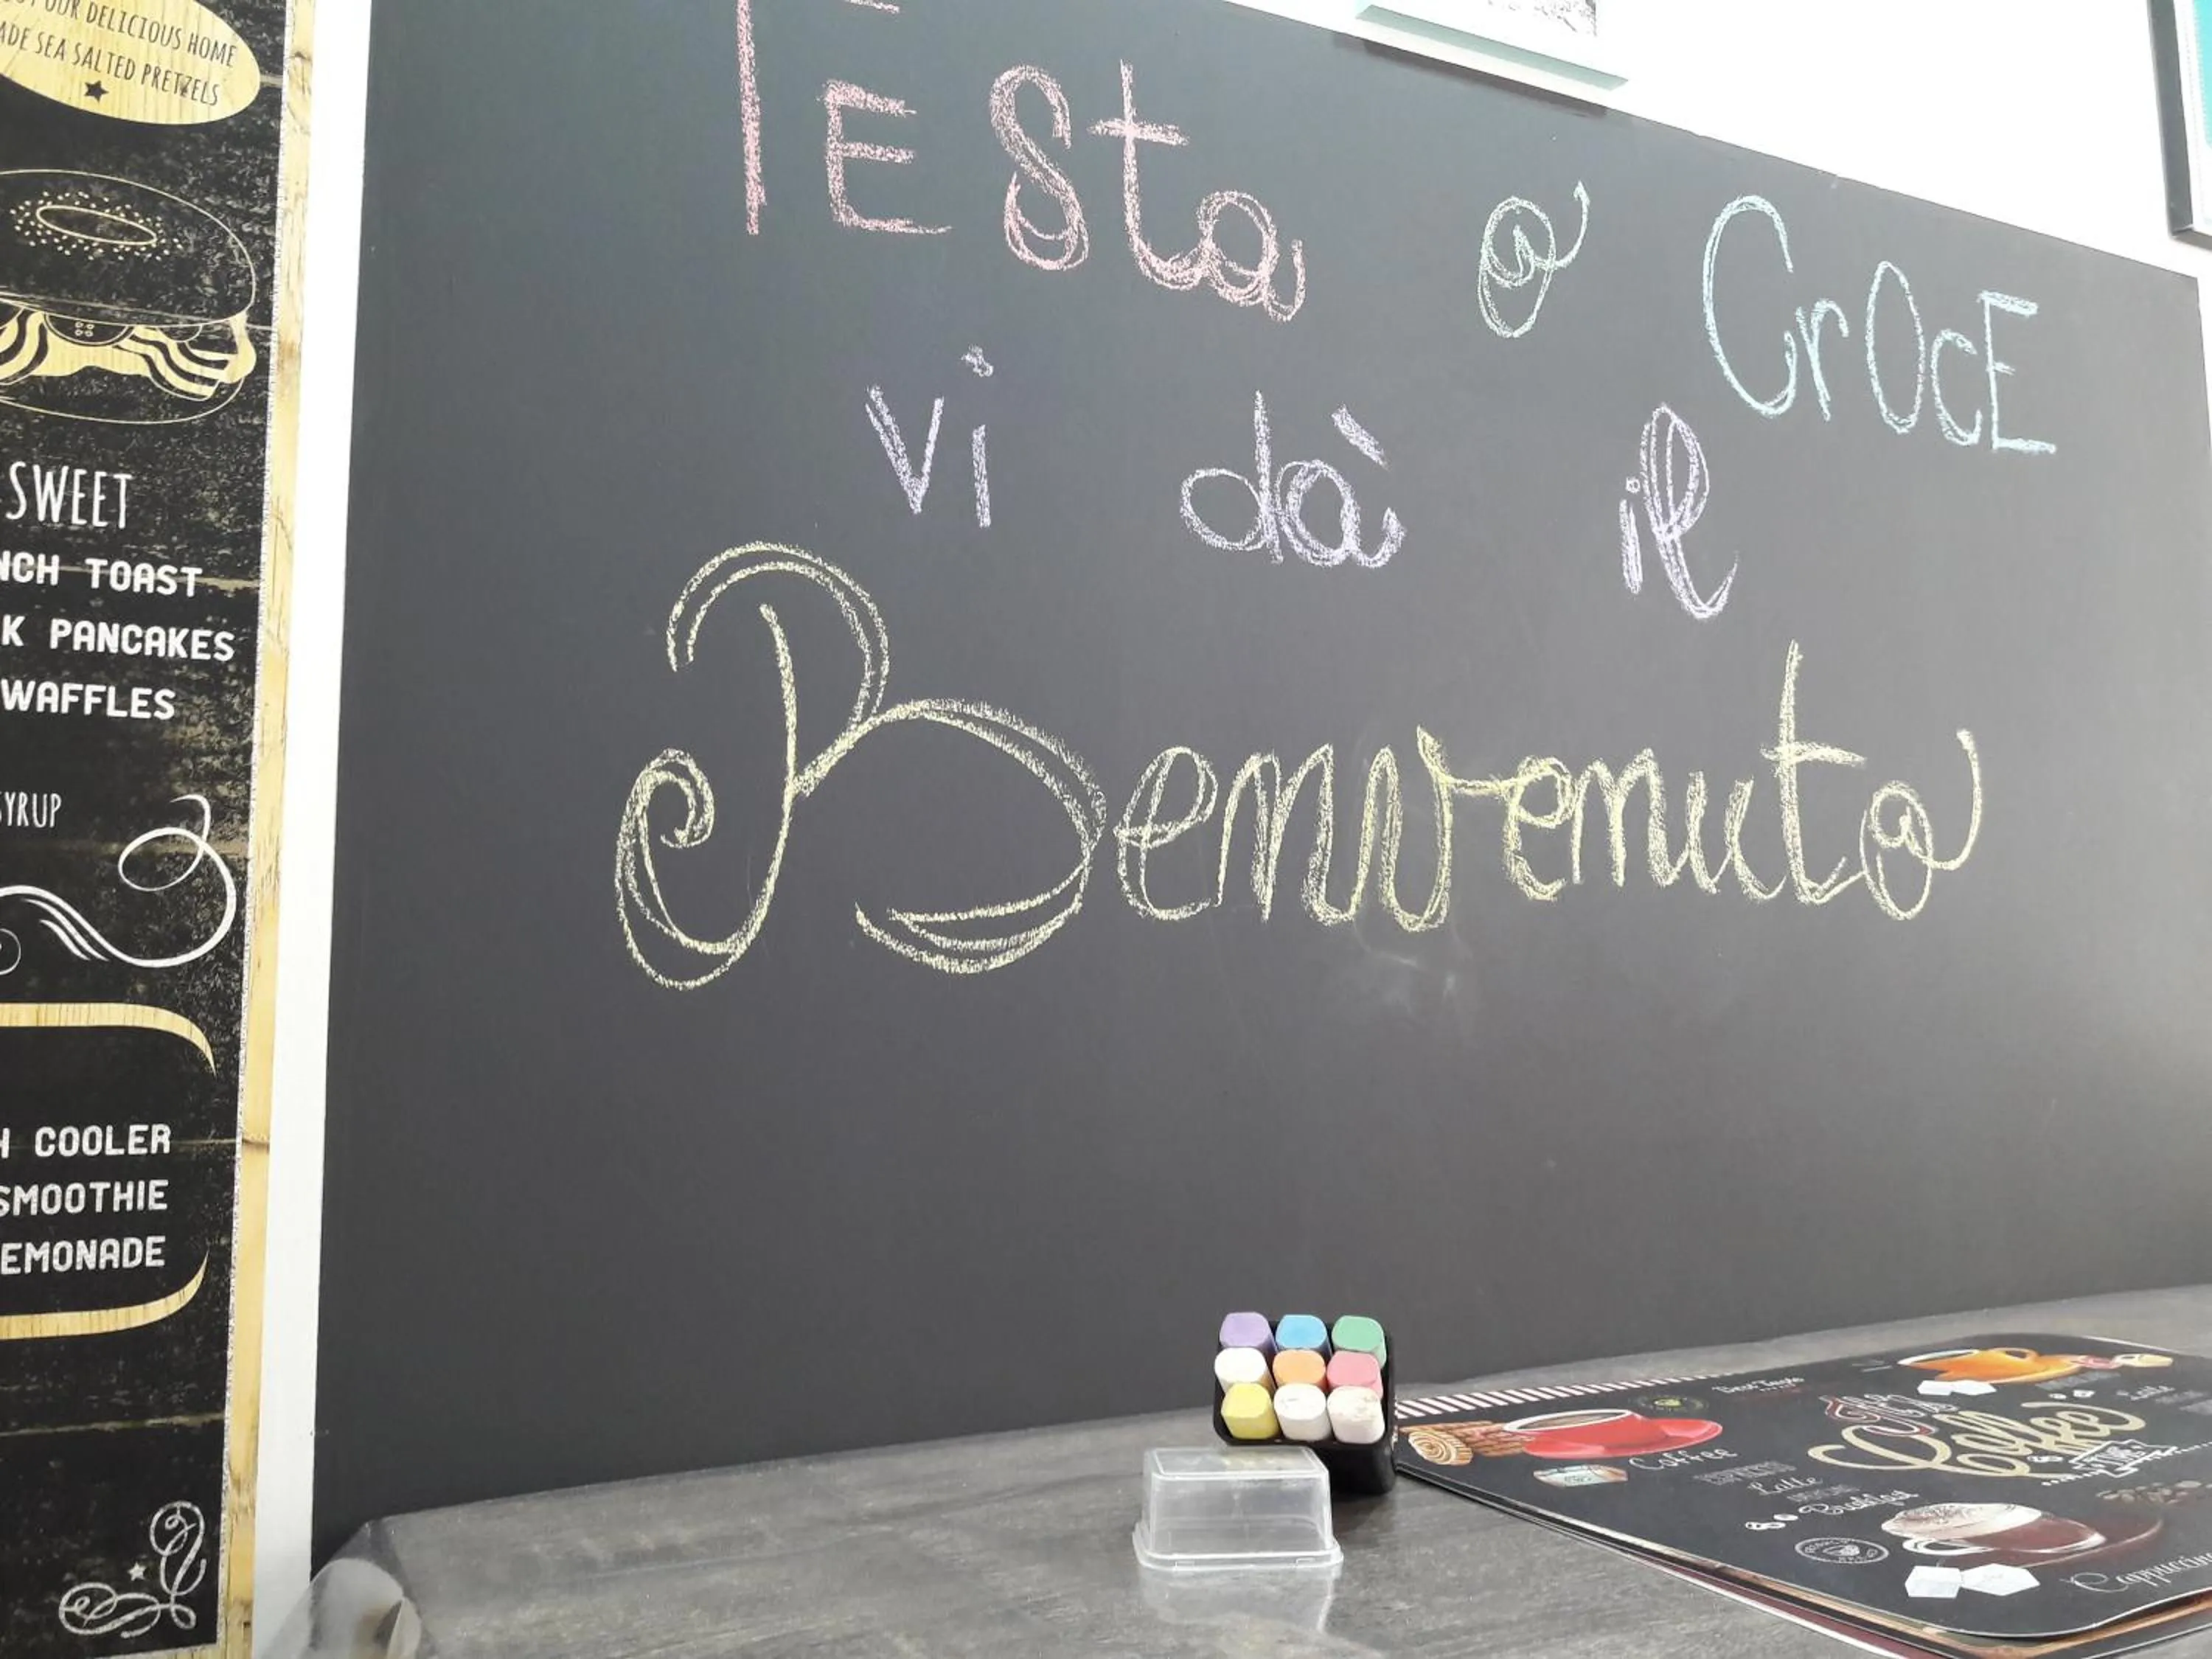 OUR DELICIOUS HOME
ADE SEA SALTED PRETZELS
SWEET
NCH TOAST
K PANCAKES
WAFFLES
SYRUP
H COOLER
SMOOTHIE
EMONADE
TEsta o CrOcE
vi dà il
Benvenuto
Coffee
Latte
Breakfast
Coffee
TIME
Cappuccino